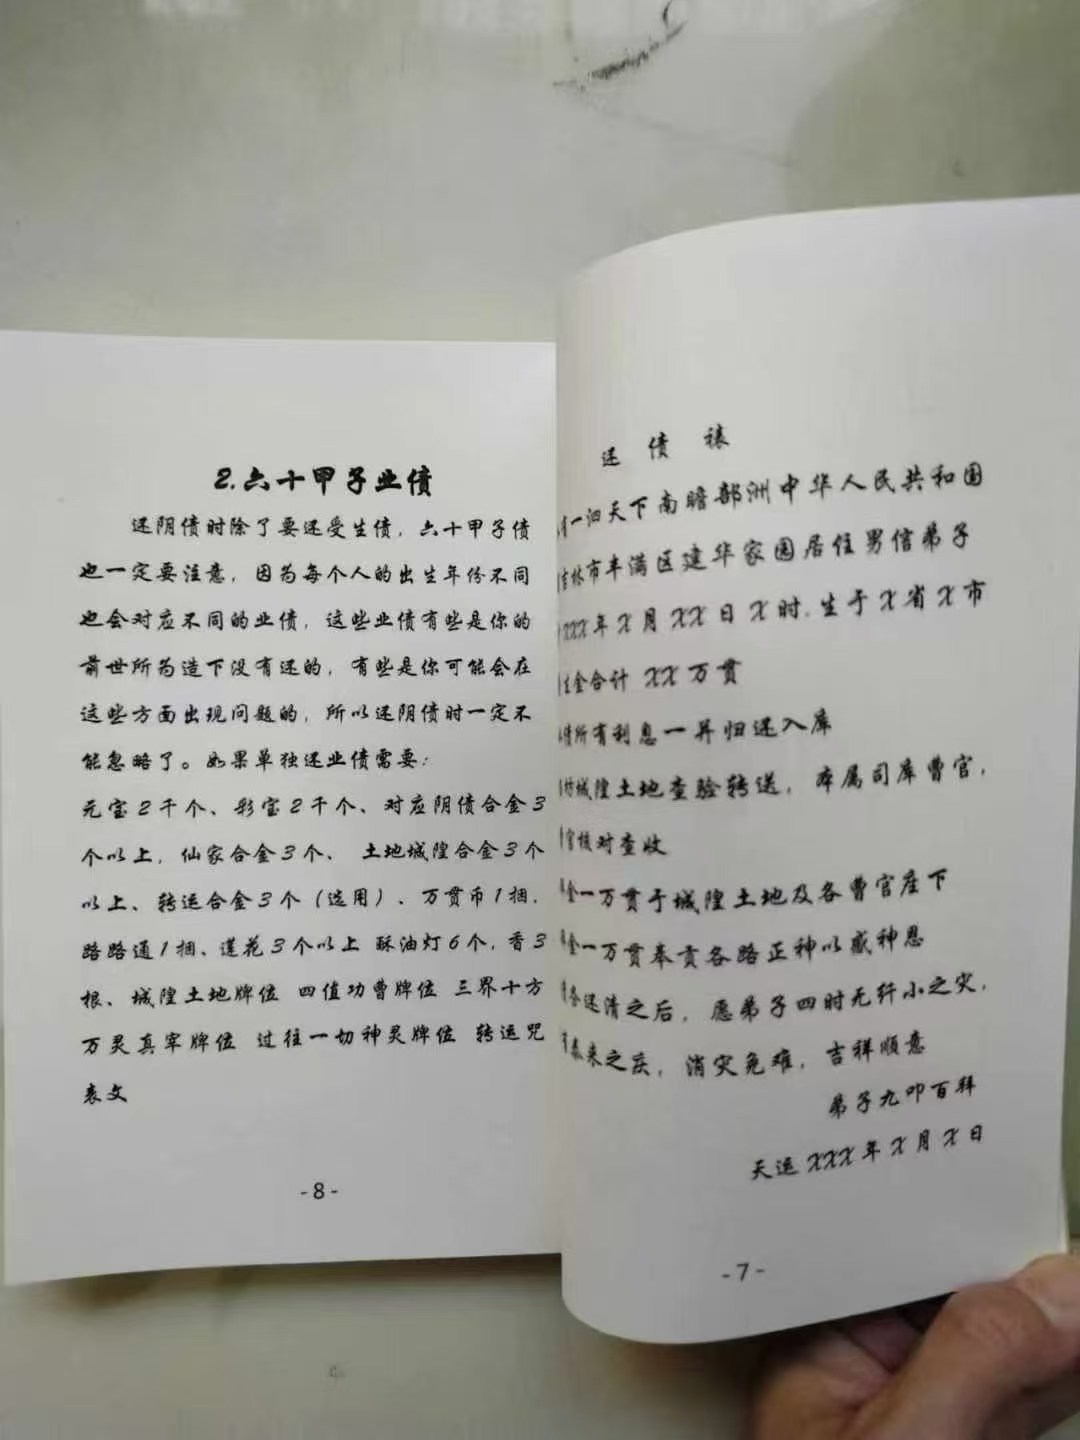 2.六十甲子业债
还阴债时除了要还受生债，六十甲子债
也一定要注意，因为每个人的出生年份不同
也会对应不同的业债，这些业债有些是你的
前世所为造下没有还的，有些是你可能会在
这些方面出现问题的，所以还阴债时一定不
能忽略了。如果单独还业债需要：
元宝2千个、彩宝2千个、对应阴债合金3
个以上，仙家合金3个、 土地城隍合金3个
以上、转运合金3个（选用）、万贯币1捆，
路路通1捆、莲花3个以上 酥油灯6个，香3
根、城隍土地牌位 四值功曹牌位 三界十方
万灵真宰牌位 过往一切神灵牌位 转运咒
表文
-8-
还 债 裱
一泗天下南瞻部洲中华人民共和国
吉林市丰满区建华家园居住男信弟子
XXX年X月XX日X时，生于X省X市
金合计 XX万贯
债所有利息一并归还入库
城隍土地查验转送，本属司库曹官，
官核对查收
金一万贯于城隍土地及各曹官座下
金一万贯奉贡各路正神以感神恩
还清之后，愿弟子四时无纤小之灾，
泰来之庆，消灾免难，吉祥顺意
弟子九叩百拜
天运XXX年X月X日
-7-